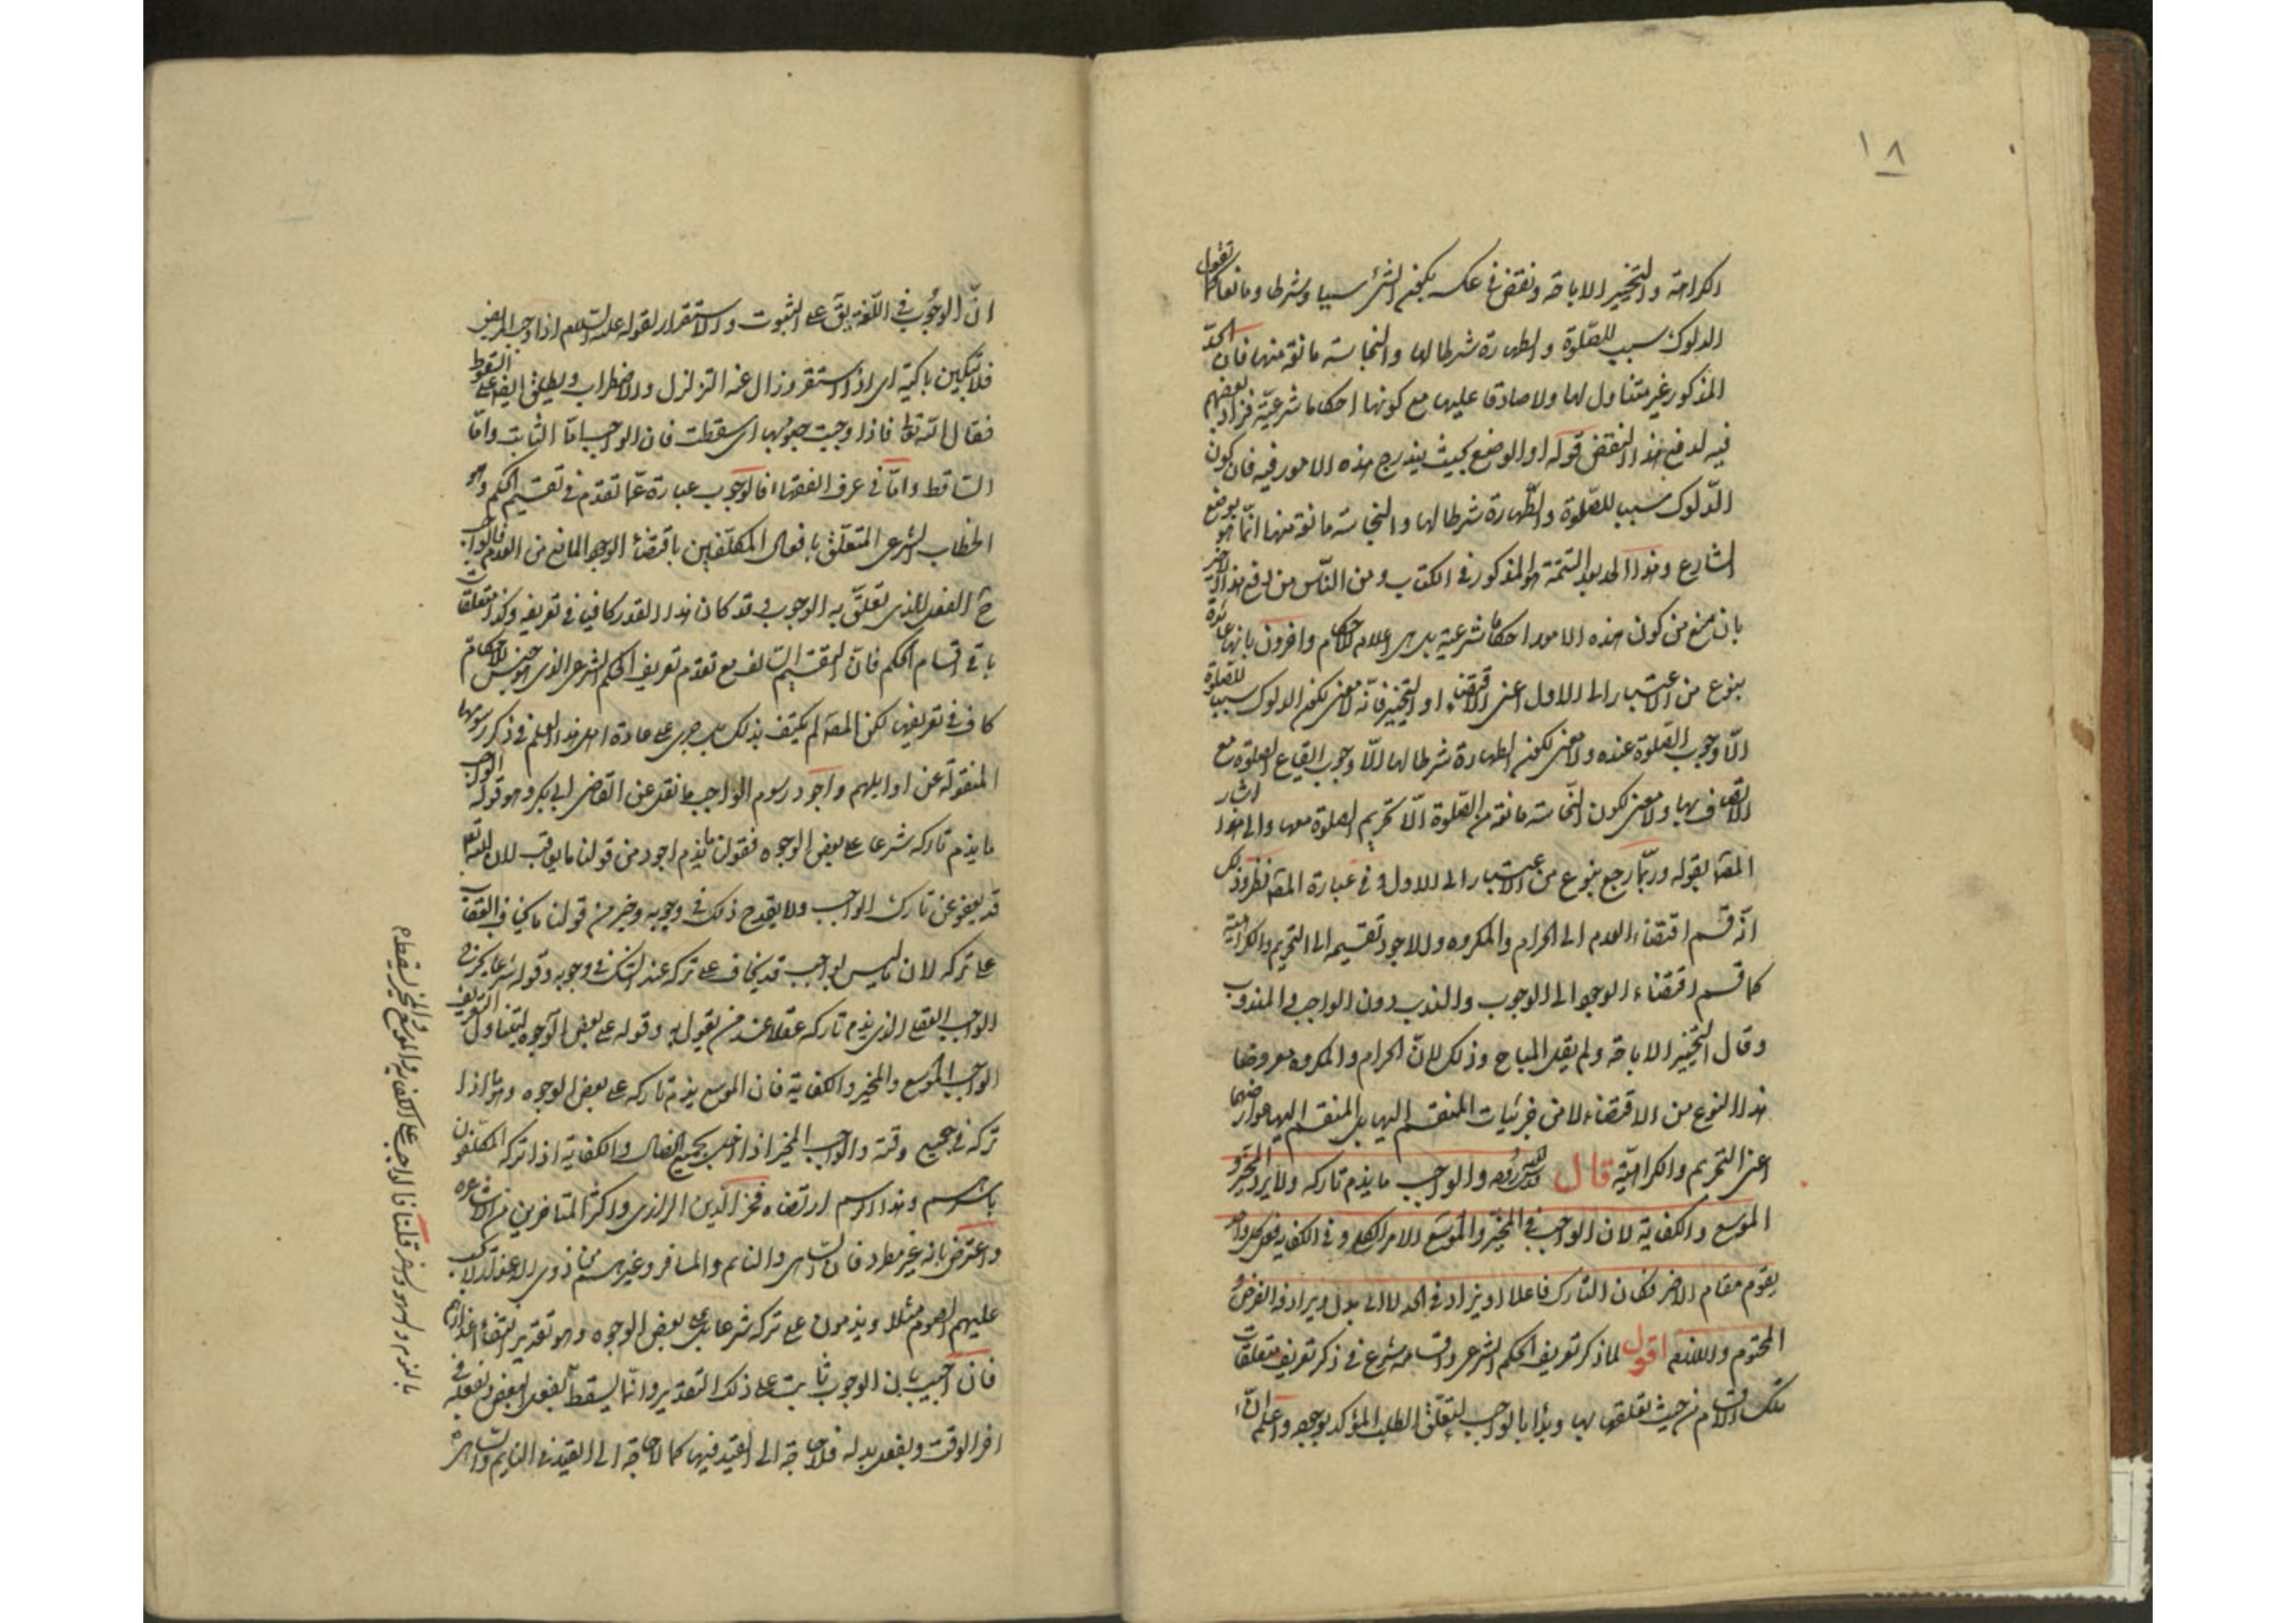 ١٨
الكراهة والتخيير الاباحة ونقض في عكسه بكون الشئ سببا وشرطا ومانعا كما تقول
الدلوك سبب للصلوة والطهارة شرط لها والنجاسة مانعة منها فان الحد
المذكور غير متناول لها ولا صادقا عليها مع كونها احكاما شرعية فزاد بعضهم
فيه لدفع هذا النقض قوله او الوضع بحيث يندرج هذه الامور فيه فان كون
الدلوك سببا للصلوة والطهارة شرطا لها والنجاسة مانعة منها انما هو بوضع
الشارع وهذا الحد بعد التتمة هو المذكور في الكتاب ومن الناس من دفع هذا
بان منع من كون هذه الامور احكاما شرعية بل هي اعلام الاحكام واخرون بانها عائدة
بنوع من الاعتبار الى الاول اعنى الاقتضاء او التخيير فانه لا معنى لكون الدلوك سببا للصلوة
الا وجوب الصلوة عنده ولا معنى لكون الطهارة شرطا لها الا وجوب ايقاع الصلوة مع
الاتصاف بها ولا معنى لكون النجاسة مانعة من الصلوة الا تحريم الصلوة معها والى هذا اشار
المصـ بقوله وربما رجع بنوع من الاعتبار الى الاول وفي عبارة المصـ نظر وذلك
انه قسم اقتضاء العدم الى الحرام والمكروه والاجود تقسيمه الى التحريم والكراهية
كما قسم اقتضاء الوجود الى الوجوب والندب دون الواجب والمندوب
وقال التخيير الاباحة ولم يقل المباح وذلك لان الحرام والمكروه معروضا
هذا النوع من الاقتضاء لا من جزئيات المنقسم اليها بل المنقسم اليها عوارضهما
اعنى التحريم والكراهية قال والواجب ما يذم تاركه ولا يرد المخير و
الموسع والكفاية لان الواجب في المخير والموسع الامر الكلي وفي الكفاية فعل كل واحد
يقوم مقام الاخر فكان التارك فاعلا او يزاد في الحد لا الى بدل ويرادفه الفرض و
المحتوم واللازم اقول لما ذكر تعريف الحكم الشرعي واقسامه شرع في ذكر تعريف متعلقات
تلك الاقسام من حيث تعلقها بها وبدأ بالواجب لتعلق الطلب المؤكد بوجوده واعلم
ان الوجوب في اللغة يق على الثبوت والاستقرار لقوله عليه السلام اذا وجب المريض
فلا تبكين باكية اي اذا استقر وزال عنه التزلزل والاضطراب ويطلق ايضا على السقوط
فقال الله تعا فاذا وجبت جنوبها اي سقطت فان الواجب اما الثابت واما
الساقط واما في عرف الفقهاء فالوجوب عبارة عما تقدم في تقسيم الحكم وهو
الخطاب الشرعي المتعلق بافعال المكلفين باقتضاء الوجود المانع من العدم فالواجب
ح الفعل الذي تعلق به الوجوب وقد كان هذا القدر كافيا في تعريفه وكذا متعلقات
باقي اقسام الحكم فان التقسيم السالف مع تقدم تعريف الحكم الشرعي الذي هو جنس للاحكام
كاف في تعريفها لكن المصـ لم يكتف بذلك بل جرى على عادة اهل هذا العلم في ذكر رسومها
المنقولة عن اوايلهم واجود رسوم الواجب ما نقل عن القاضي ابي بكر وهو قوله الواجب
ما يذم تاركه شرعا على بعض الوجوه فقولنا يذم اجود من قولنا ما يعاقب لان الله تعا
قد يعفو عن تارك الواجب ولا يقدح ذلك في وجوبه وخير من قولنا ما يخاف العقاب
على تركه لان ما ليس بواجب قد يخاف على تركه عند الشك في وجوبه وقوله شرعا يخرج
الواجب العقلي الذي يذم تاركه عقلا عند من يقول به وقوله على بعض الوجوه ليتناول التعريف
الواجب الموسع والمخير والكفاية فان الموسع يذم تاركه على بعض الوجوه وهو ما اذا
تركه في جميع وقته والواجب المخير اذا اخل بجميع الخصال والكفاية اذا تركه المكلفون
باسرهم وهذا الرسم ارتضاه فخر الدين الرازي واكثر المتاخرين من الاشاعرة
واعترض بانه غير مطرد فان الساهي والنايم والمسافر وغيرهم من ذوي الاعذار لا يجب
عليهم الصوم مثلا ويذمون على تركه شرعا على بعض الوجوه وهو تقدير انتفاء اعذارهم
فان اجيب بان الوجوب ثابت على ذلك التقدير وانما يسقط بفعل البعض وبفعله في
اخر الوقت وبفعل بدله فلا حاجة الى القيد فيها كما لا حاجة الى القيد في النايم والساهي
بالنوم والسهو والسفر قلنا فالواجب على الكفاية والموسع والمخير يسقط